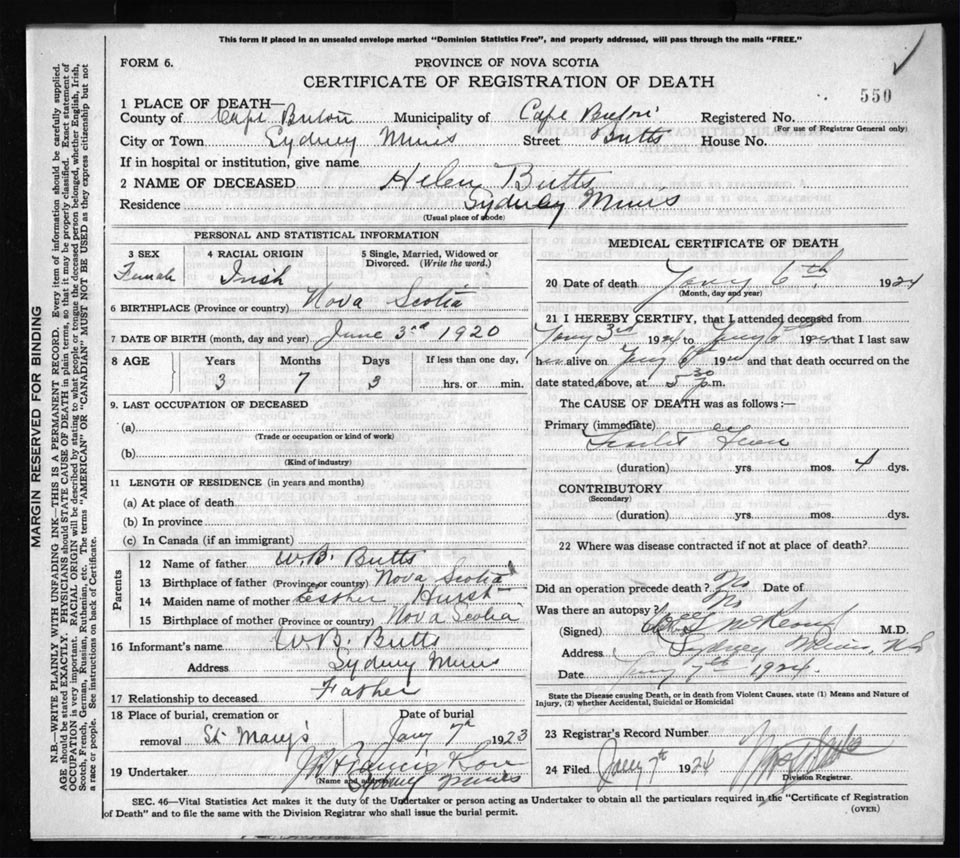 This form if placed in an unsealed envelope marked "Dominion Statistics Free", and properly addressed, will pass through the mails "FREE."
FORM 6.
PROVINCE OF NOVA SCOTIA
CERTIFICATE OF REGISTRATION OF DEATH
550
1 PLACE OF DEATH—
County of Cape Breton Municipality of Cape Breton Registered No.
(For use of Registrar General only)
City or Town Sydney Mines Street Butts House No.
If in hospital or institution, give name
2 NAME OF DECEASED Helen Butts
Residence Sydney Mines
(Usual place of abode)
PERSONAL AND STATISTICAL INFORMATION
3 SEX Female
4 RACIAL ORIGIN Irish
5 Single, Married, Widowed or Divorced. (Write the word.)
6 BIRTHPLACE (Province or country) Nova Scotia
7 DATE OF BIRTH (month, day and year) June 3rd 1920
8 AGE Years Months Days If less than one day,
3 7 3 hrs. or min.
9. LAST OCCUPATION OF DECEASED
(a)
(Trade or occupation or kind of work)
(b)
(Kind of industry)
11 LENGTH OF RESIDENCE (in years and months)
(a) At place of death
(b) In province
(c) In Canada (if an immigrant)
Parents
12 Name of father W. B. Butts
13 Birthplace of father (Province or country) Nova Scotia
14 Maiden name of mother Esther Hurst
15 Birthplace of mother (Province or country) Nova Scotia
16 Informant's name W. B. Butts
Address Sydney Mines
17 Relationship to deceased Father
18 Place of burial, cremation or removal St Mary's
Date of burial Jany 7th 1923
19 Undertaker Francis
(Name and address) Sydney Mines
MEDICAL CERTIFICATE OF DEATH
20 Date of death Jany 6th, 1924
(Month, day and year)
21 I HEREBY CERTIFY, that I attended deceased from
Jany 3rd 1924 to Jany 6th 1924 that I last saw
her alive on Jany 6th 1924 and that death occurred on the
date stated above, at 5 30 p.m.
The CAUSE OF DEATH was as follows:—
Primary (immediate)
Scarlet Fever
(duration) yrs. mos. 4 dys.
CONTRIBUTORY
(Secondary)
(duration) yrs. mos. dys.
22 Where was disease contracted if not at place of death?
Did an operation precede death? No Date of
Was there an autopsy? No
(Signed) M.D.
Address Sydney Mines, N.S
Date Jany 7th 1924.
State the Disease causing Death, or in death from Violent Causes, state (1) Means and Nature of
Injury, (2) whether Accidental, Suicidal or Homicidal
23 Registrar's Record Number
24 Filed Jany 7th 1924
Division Registrar.
SEC. 46—Vital Statistics Act makes it the duty of the Undertaker or person acting as Undertaker to obtain all the particulars required in the "Certificate of Registration
of Death" and to file the same with the Division Registrar who shall issue the burial permit.
(OVER)
MARGIN RESERVED FOR BINDING
N.B.—WRITE PLAINLY WITH UNFADING INK—THIS IS A PERMANENT RECORD. Every item of information should be carefully supplied.
AGE should be stated EXACTLY. PHYSICIANS should STATE CAUSE OF DEATH in plain terms, so that it may be properly classified. Exact statement of
OCCUPATION is very important. RACIAL ORIGIN will be described by stating to what people or tongue the deceased person belonged, whether English, Irish,
Scotch, French, German, Russian, Ruthenian, etc. The terms "AMERICAN" OR "CANADIAN" MUST NOT BE USED as they express citizenship but not
a race or people. See instructions on back of Certificate.